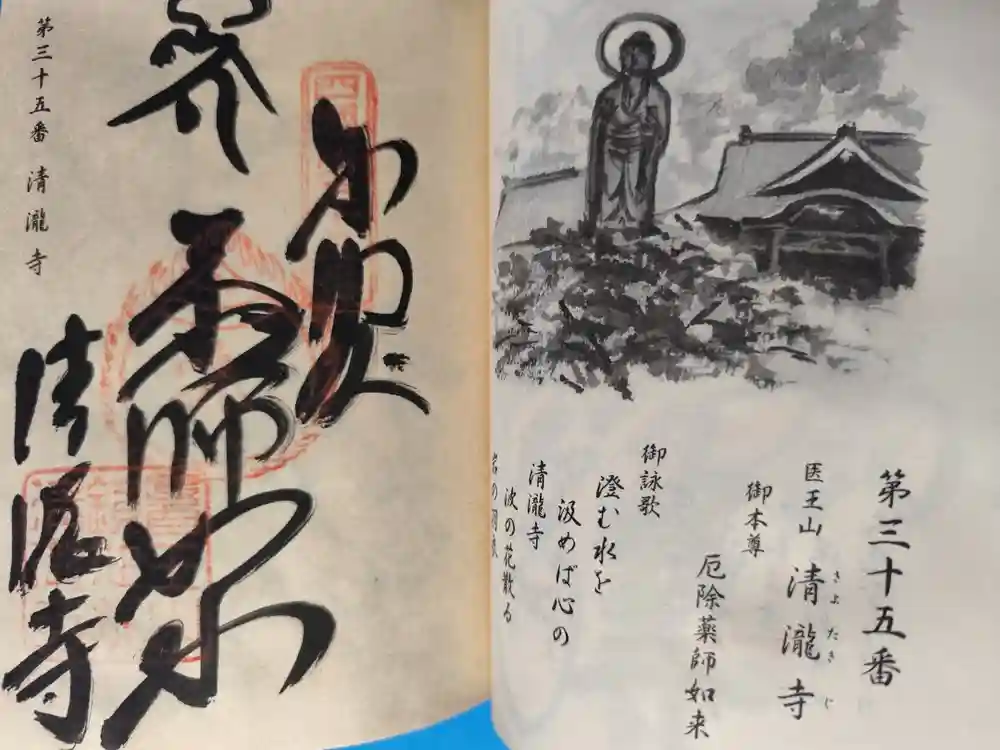 第三十五番
医王山 清瀧寺
きよたきじ
御本尊
厄除薬師如来
御詠歌
澄む水を
汲めば心の
清瀧寺
波の花散る
岩の羽衣
奉
薬師如来
清瀧寺
第三十五番 清瀧寺